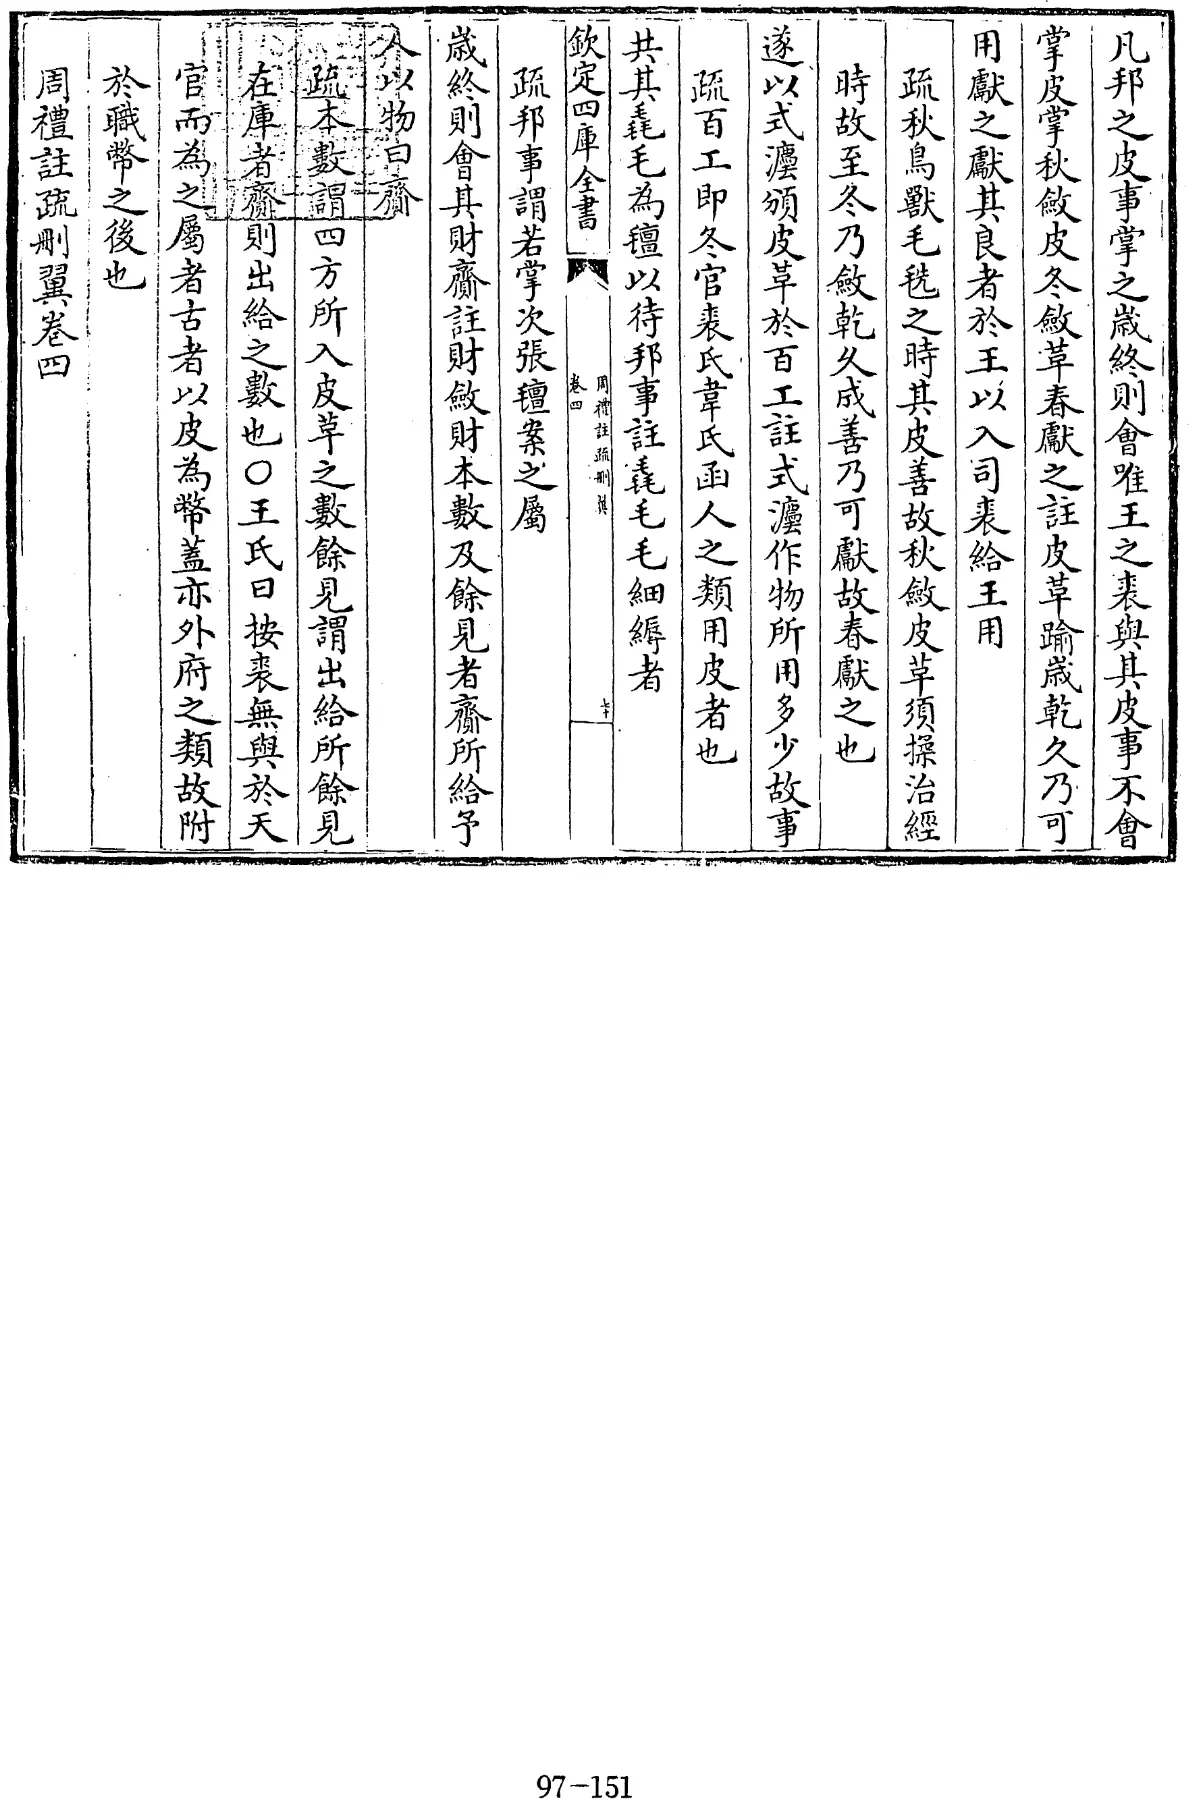 凡邦之皮事掌之嵗終則會唯王之裘與其皮事不會
掌皮掌秋斂皮冬斂革春獻之註皮革踰嵗乾久乃可
用獻之獻其良者於王以入司裘給王用
疏秋鳥獸毛毨之時其皮善故秋斂皮革須揉治經
時故至冬乃斂乾久成善乃可獻故春獻之也
遂以式灋頒皮革於百工註式灋作物所用多少故事
疏百工即冬官裘氏韋氏函人之類用皮者也
共其毳毛為氊以待邦事註毳毛毛細縟者
欽定四庫全書
周禮註疏刪翼
卷四
七十
疏邦事謂若掌次張氊案之屬
嵗終則會其財齎註財斂財本數及餘見者齎所給予
人以物曰齎
疏本數謂四方所入皮革之數餘見謂出給所餘見
在庫者齎則出給之數也○王氏曰按裘無與於天
官而為之屬者古者以皮為幣蓋亦外府之類故附
於職幣之後也
周禮註疏刪翼卷四
97-151